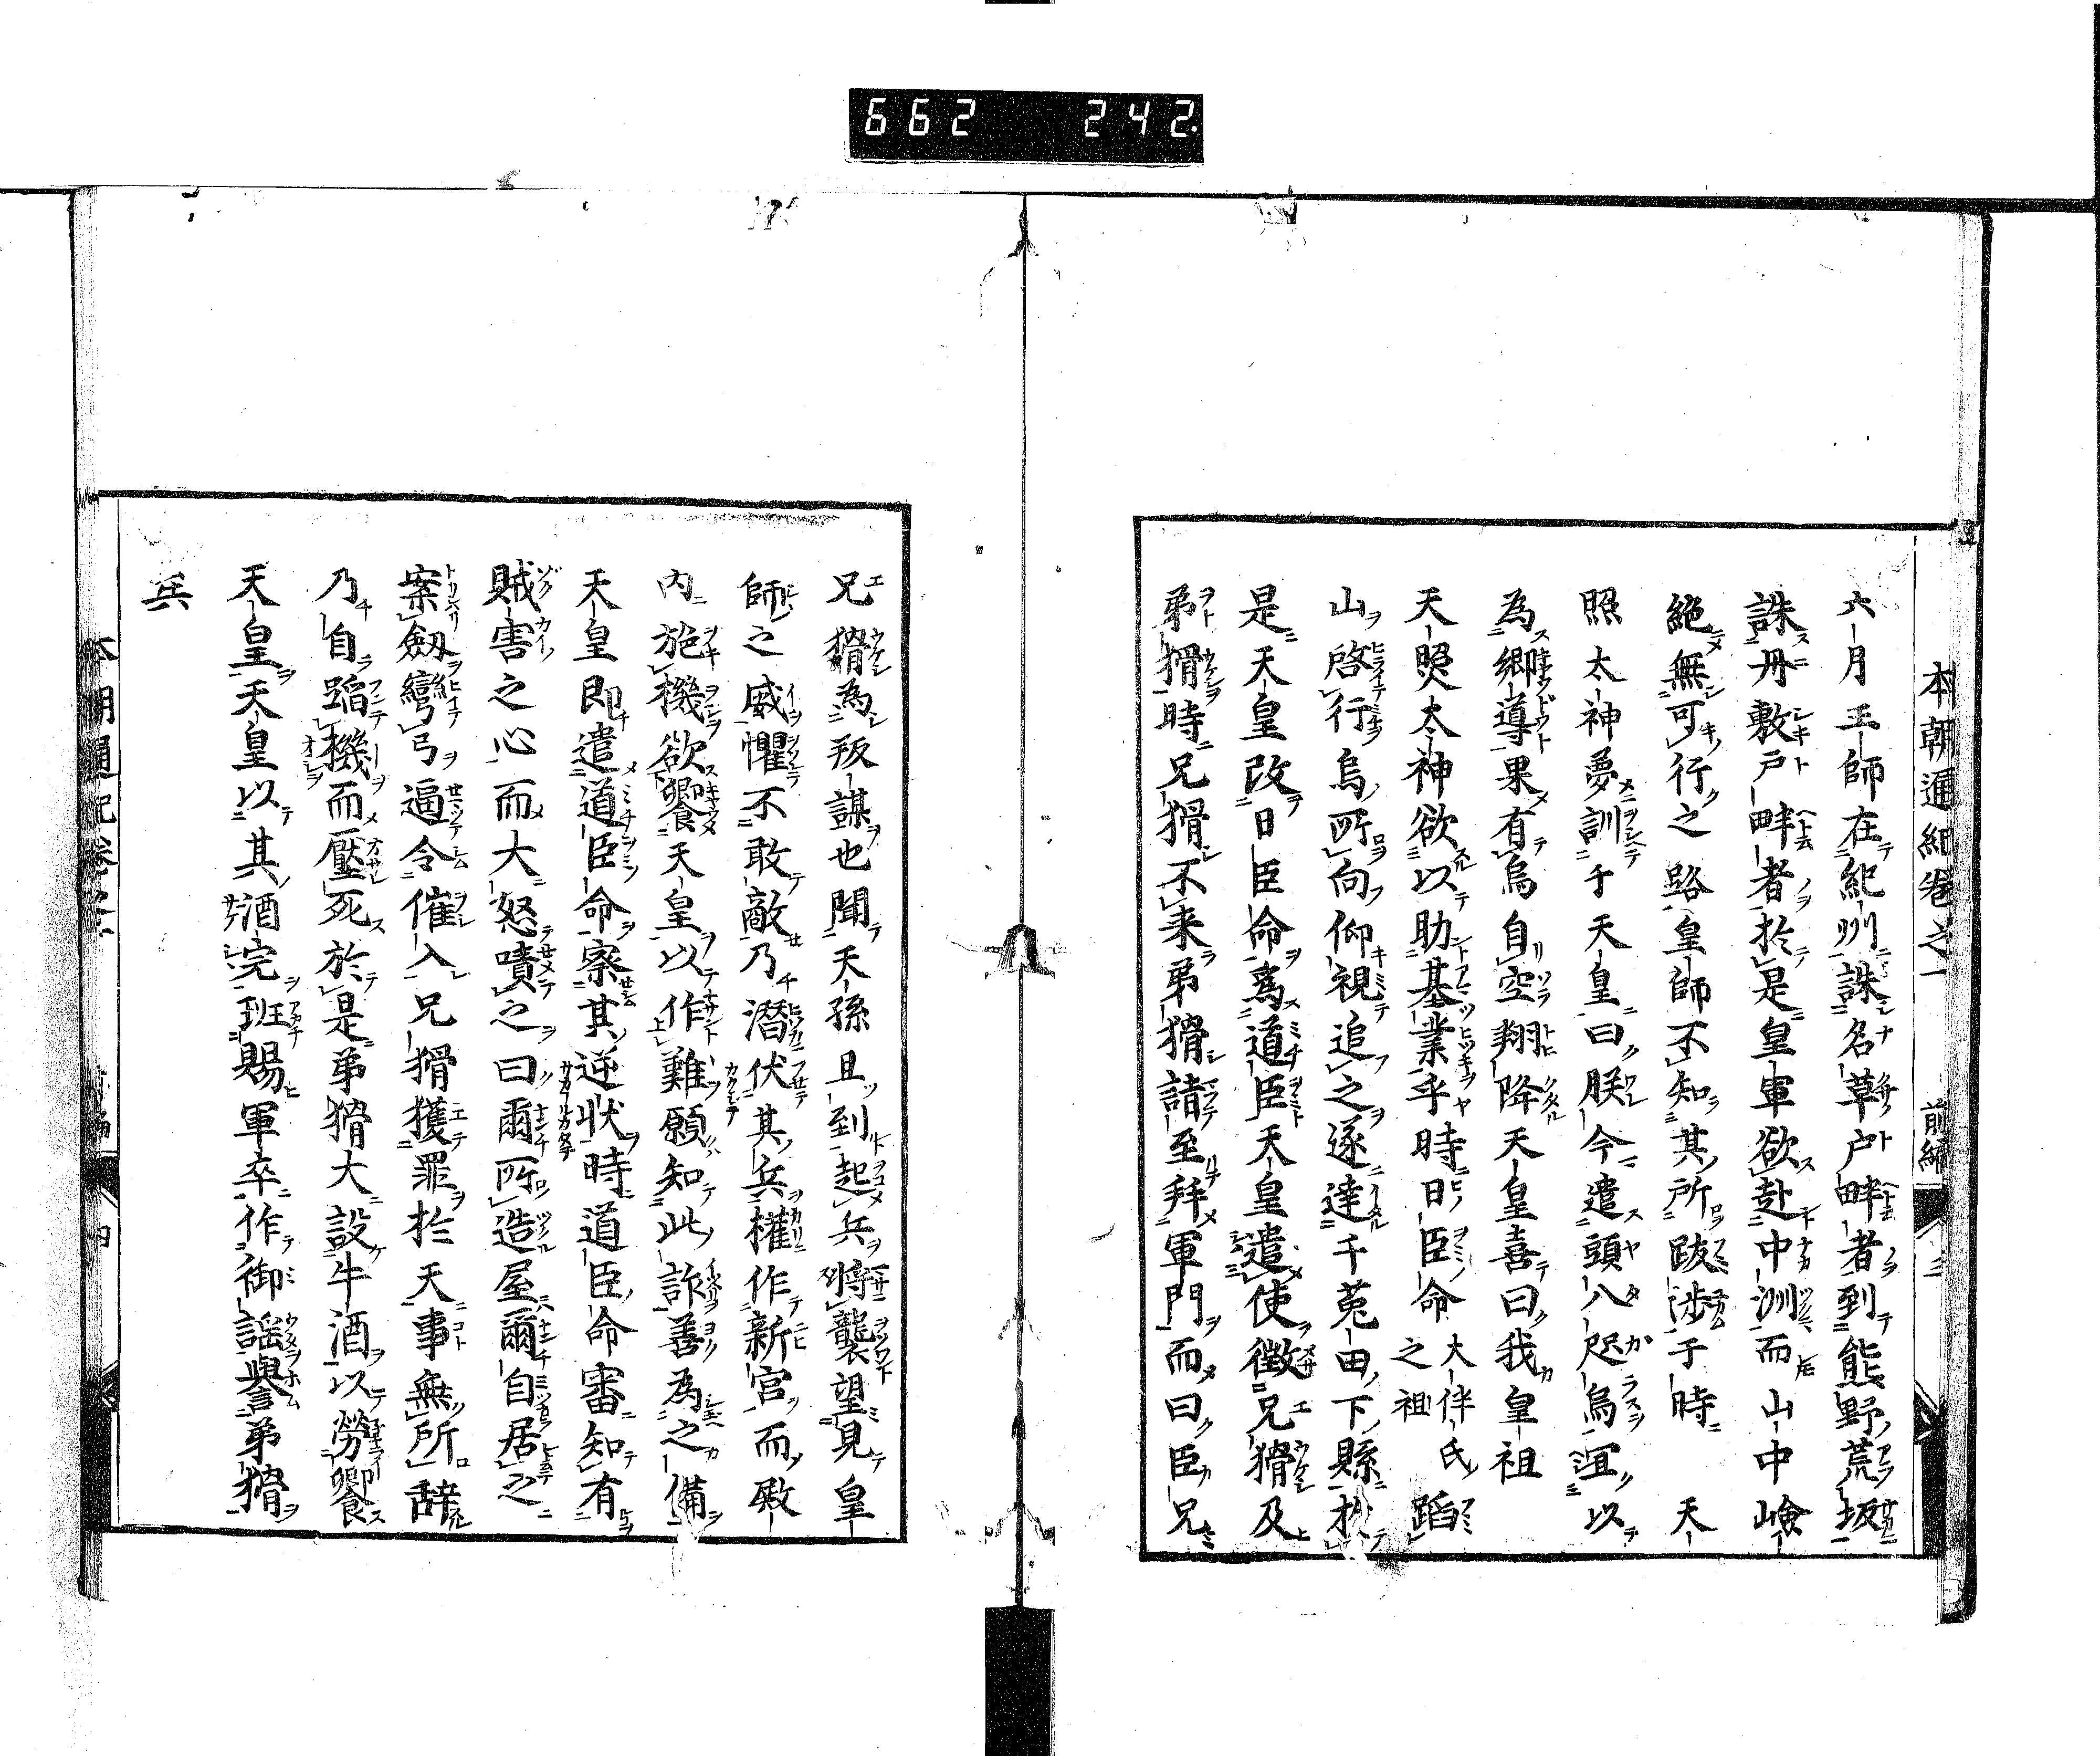 662 242.
本朝通紀巻之一 前編 三
六月王師在紀州誅名草戸畔者到熊野荒坂
誅丹敷戸畔者於是皇軍欲赴中洲而山中嶮
絶無可行之路皇師不知其所跋渉于時 天
照太神夢訓于天皇曰朕今遣頭八咫烏冝以
為郷導果有烏自空翔降天皇喜曰我皇祖
天照太神欲以助基業乎時日臣命大伴氏之祖蹈
山啓行烏所向仰視追之遂達于菟田下縣於
是天皇改日臣命為道臣天皇遣使徴兄猾及
弟猾時兄猾不来弟猾請至拜軍門而曰臣兄
兄猾為叛謀也聞天孫且到起兵将襲望見皇
師之威懼不敢敵乃潜伏其兵権作新宮而殿
内施機欲饗天皇以作難願知此詐善為之備
天皇即遣道臣命察其逆状時道臣命審知有
賊害之心而大怒嘖之曰爾所造屋爾自居之
案劔彎弓逼令催入兄猾獲罪於天事無所辞
乃自蹈機而壓死於是弟猾大設牛酒以勞饗
天皇天皇以其酒完班賜軍卒作御謡譽弟猾
兵
本朝通紀巻之一 前編 四